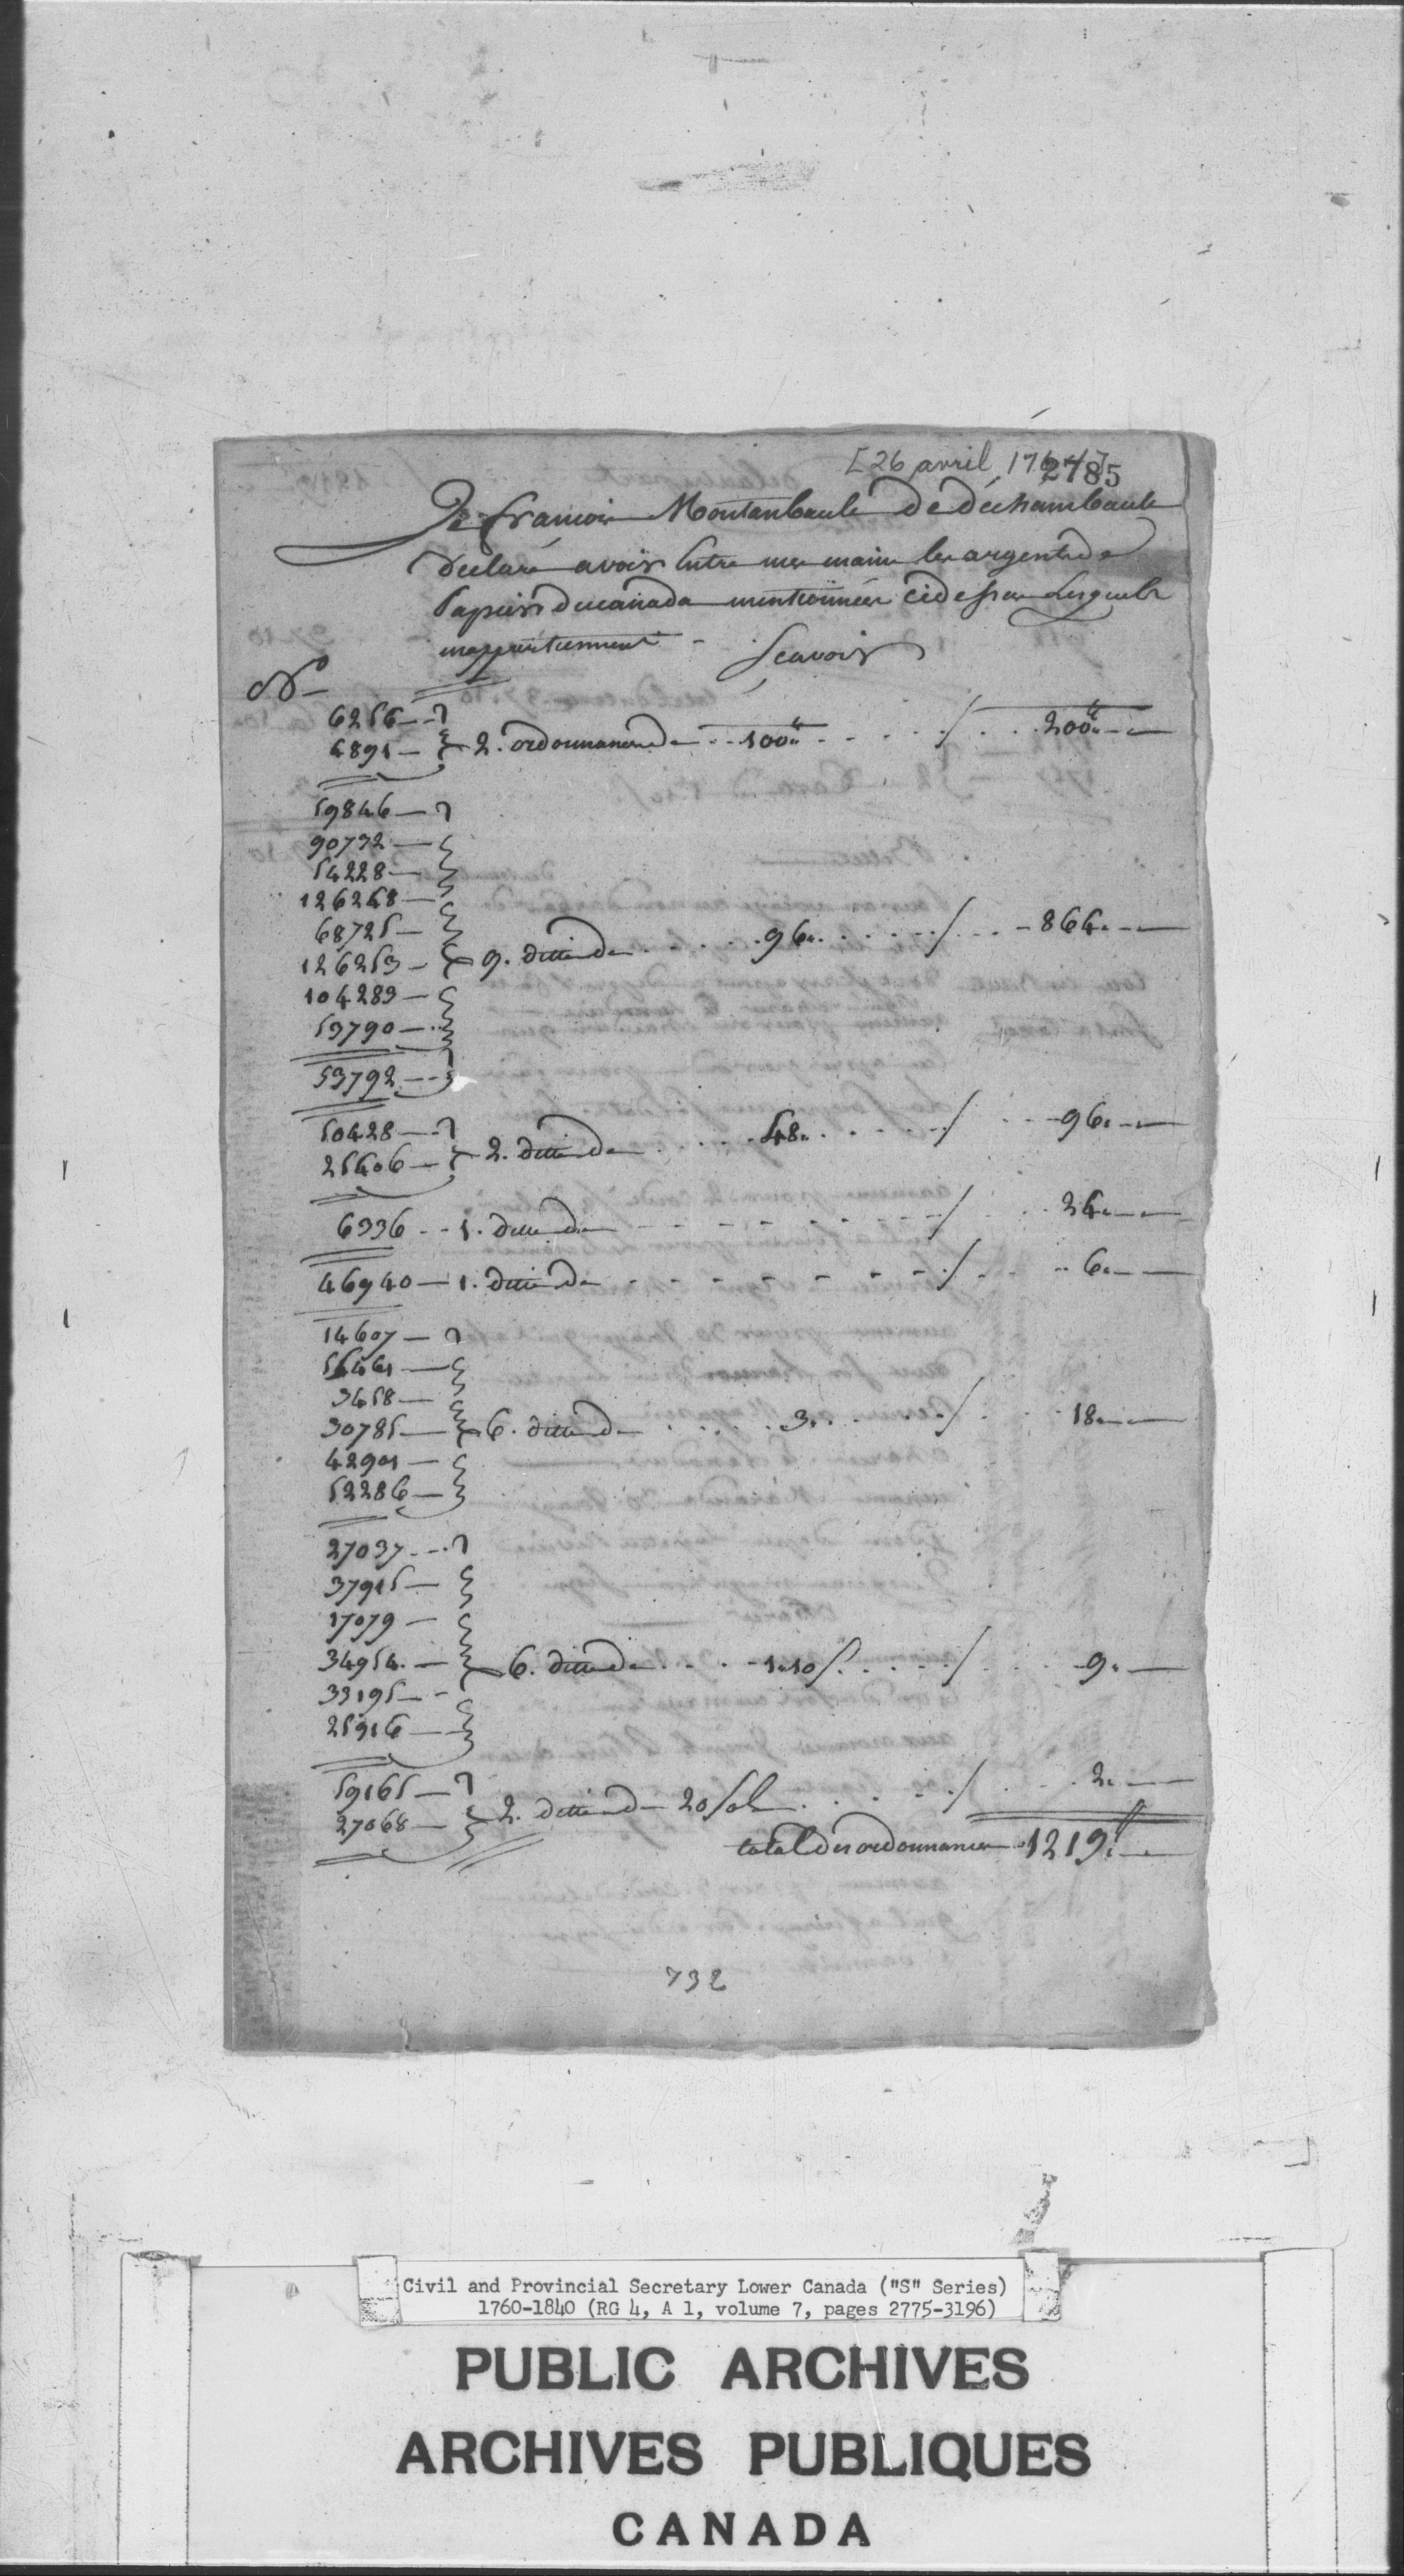 [26 avril 1764]
2785
Je francois Montanbault De dechambault
declare avoir Entre mes mains les argents de
papier du canada mentionnées cidessous Lesquels
mappartiennent - Scavoir
No
6256
4891 2. ordonnances de 100# 200#
59846
90732
54228
126248
68725
126253 9. dittes de 96 864
104283
53790
53792
50428
25406 2. dittes de 48 96
6336 1. ditte de 24
46940 1. ditte de 6
14607
55461
3458
30785 6. dittes de 3 18
42901
52286
27037
37915
17079
34954 6. dittes de 1.10s 9
33195
25916
59165
27068 2. dittes de 20 sols 2
total des ordonnances 1219#
732
Civil and Provincial Secretary Lower Canada ("S" Series)
1760-1840 (RG 4, A 1, volume 7, pages 2775-3196)
PUBLIC ARCHIVES
ARCHIVES PUBLIQUES
CANADA